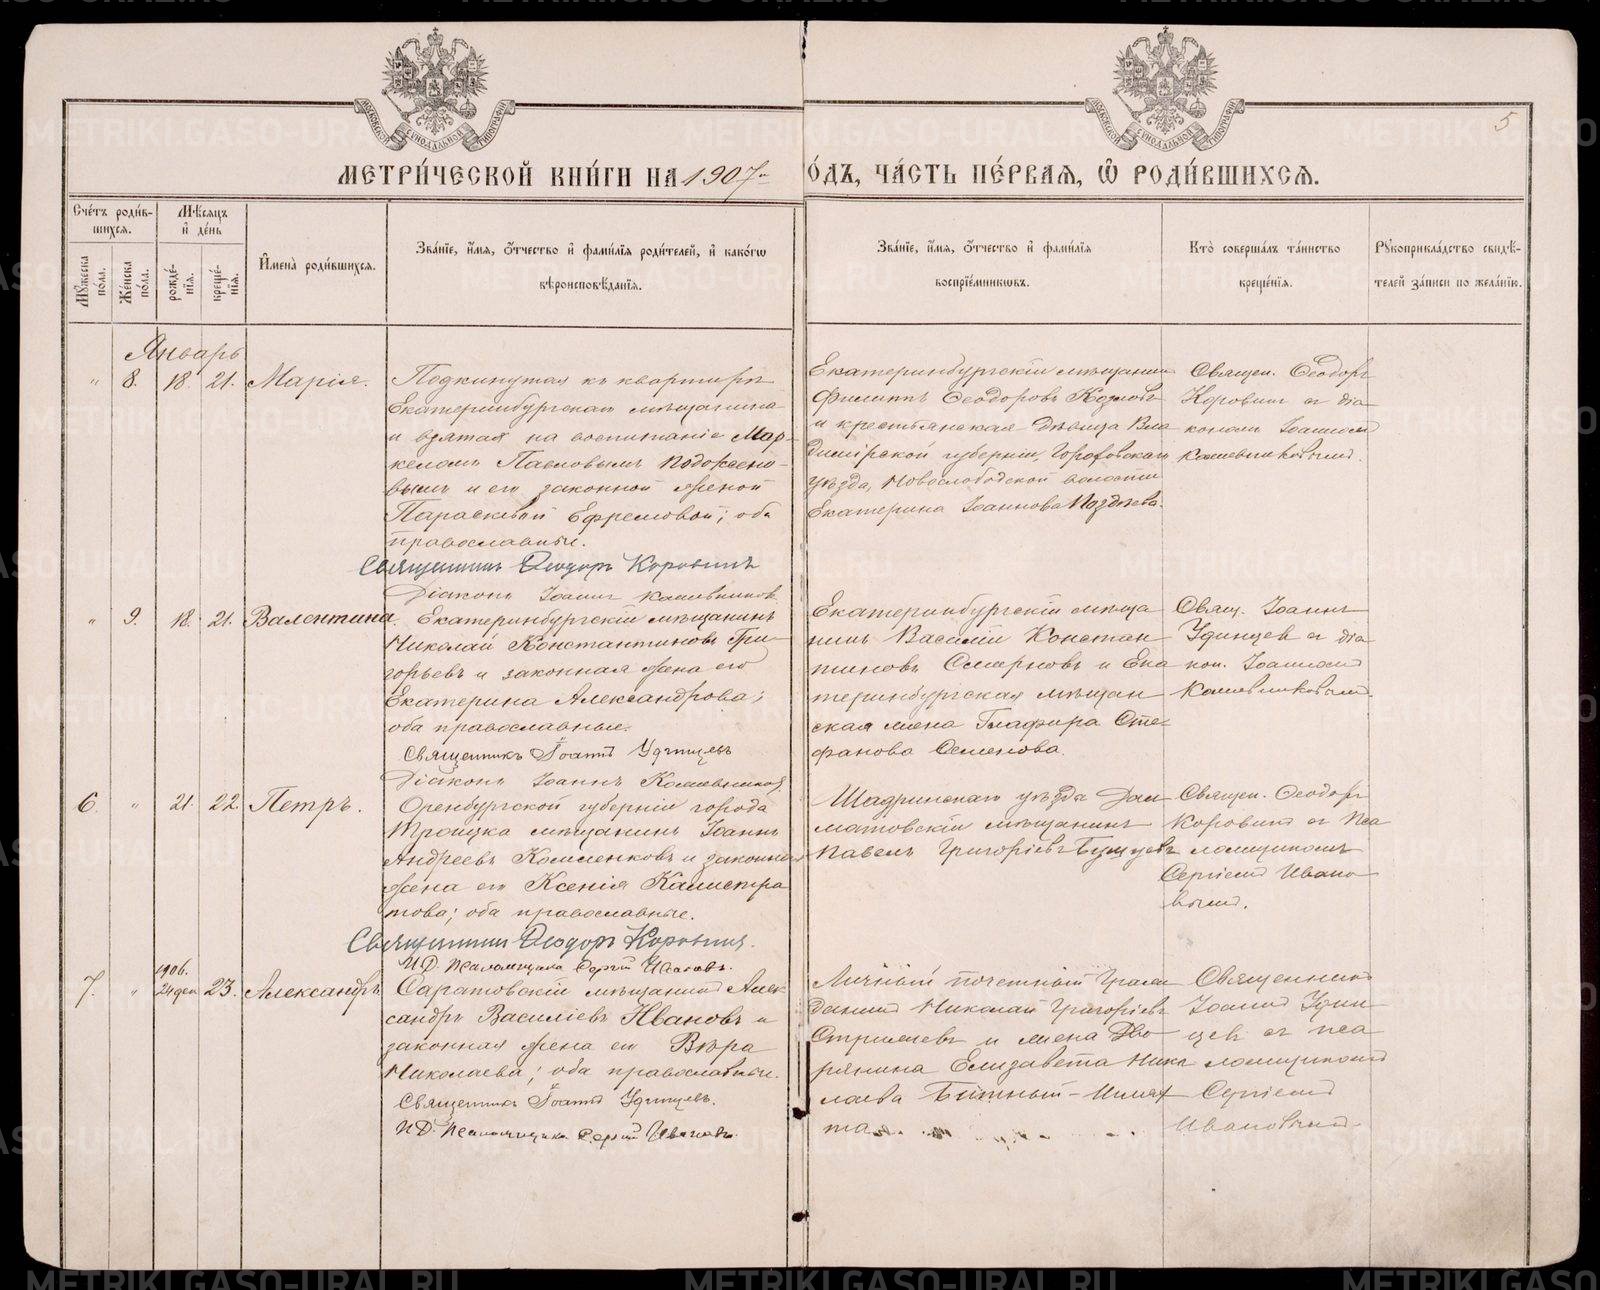 МЕТРИ́ЧЕСКОЙ КНИ́ГИ НА 1907-й
О́ДЪ, ЧА́СТЬ ПЕ́РВАЯ, Ѡ РОДИ́ВШИХСЯ.
5
Сче́тъ роди́вшихся.
Му́жеска по́ла.
Же́нска по́ла.
Мѣ́сяцъ и де́нь
рожде́нїя.
креще́нїя.
И́мена̀ роди́вшихся.
Зва́нїе, и́мя, ѻ́тчество и фами́лїя роди́телей, и како́гѡ
вѣроисповѣ́данїя.
Зва́нїе, и́мя, ѻ́тчество и фами́лїя
воспрїе́мникѡвъ.
Кто̀ соверша́лъ та́инство
креще́нїя.
Рꙋкоприкла́дство свидѣ́-
телей за́писи по жела́нїю.
Январь
" 8. 18. 21. Марія.
Подкинутая къ квартирѣ
Екатеринбургскаго мѣщанина
и взятая на воспитаніе Мар-
келомъ Павловымъ
вымъ и его законной женой
Параскевой Ефремовой; оба
православные.
Священникъ Ѳеодоръ Коровинъ
Діаконъ Іоаннъ Кашевниковъ
Екатеринбургскій мѣщанинъ
Филиппъ Ѳеодоровъ Козловъ
и крестьянская дѣвица Вла
димірской губерніи, Гороховскаго
уѣзда, Новослободской волости
Екатерина Іоаннова
Священ. Ѳеодоръ
Коровинъ съ діа
кономъ Іоанномъ
Кашевниковымъ.
" 9. 18. 21. Валентина.
Екатеринбургскій мѣщанинъ
Николай Константиновъ Гри-
горьевъ и законная жена его
Екатерина Александрова;
оба православные.
Священникъ Іоаннъ Удинцевъ
Діаконъ Іоаннъ Кашевниковъ
Екатеринбургскій мѣща
нинъ Василій Констан
тиновъ Смирновъ и Ека
теринбургская мѣщан
ская жена Глафира Сте
фанова Семенова.
Свящ. Іоаннъ
Удинцев съ діа
кон. Іоанномъ
Кашевниковымъ.
6. " 21. 22. Петръ.
Оренбургской губерніи города
Троицка мѣщанинъ Іоаннъ
Андреевъ и законная
жена его Ксенія Калистра
това; оба православные.
Священникъ Ѳеодоръ Коровинъ.
И. Д. Псаломщика Сергій Ивановъ.
Шадринскаго уѣзда Дал
матовскій мѣщанинъ
Павелъ Григорьевъ
Священ. Ѳеодоръ
Коровинъ съ пса
ломщикомъ
Сергіемъ Ивано
вымъ.
7. " 1906. 24 дек 23. Александръ
Саратовскій мѣщанинъ Алек
сандръ Василіевъ Ивановъ и
законная жена его Вѣра
Николаева; оба православные.
Священникъ Іоаннъ Удинцевъ.
И. Д. Псаломщика Сергій Ивановъ.
Личный почетный Граж
данинъ Николай Григоріевъ
и жена Дво
рянина Елизавета Нико
лаева
Священникъ
Іоаннъ Удин
цев съ пса
ломщикомъ
Сергіемъ
Ивановымъ.
METRIKI.GASO-URAL.RU